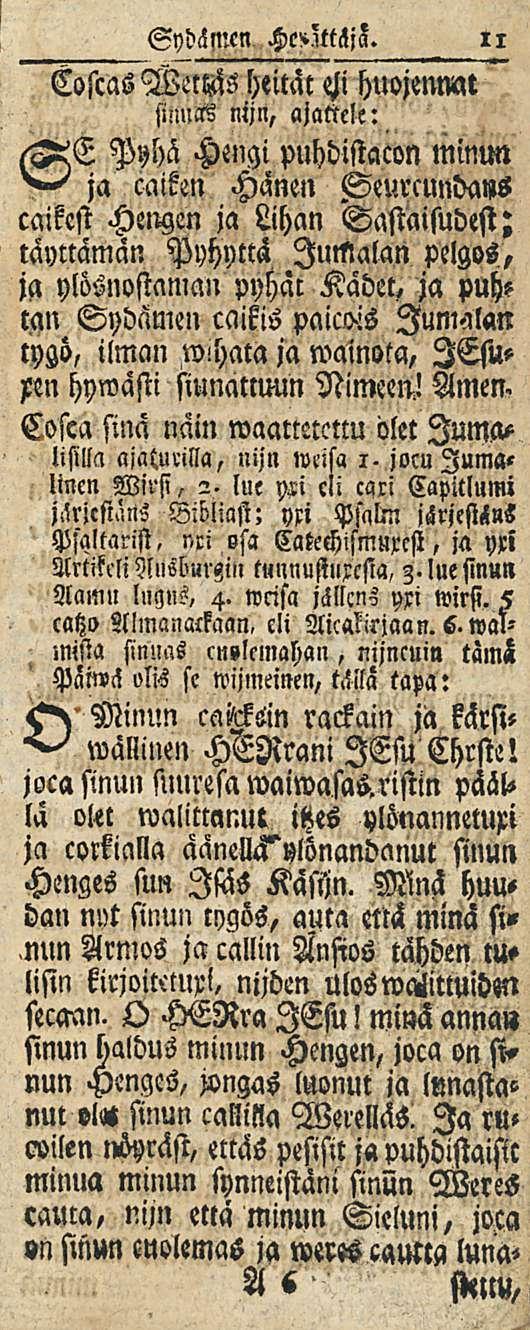 Sydämen Herättäjä. 11
Coscas Wettäs heität eli huojennat
sinuas nijn, ajattele:
SE Pyhä Hengi puhdistacon minun
ja caiken Hänen Seurcundans
caikest Hengen ja Lihan Sastaisudest;
täyttämän Pyhyttä Jumalan pelgos,
ja ylösnostaman pyhät Kädet, ja puh-
tan Sydämen caikis paicois Jumalan
tygö, ilman wihata ja wainota, JEsu-
xen hywästi siunattuun Nimeen! Amen.
Cosca sinä näin waattetettu olet Juma-
lisilla ajaturilla, nijn weisa 1. jocu Juma-
linen Wirsi, 2. lue yxi eli caxi Capitlumi
järjestäns Bibliast; yxi Psalm järjestäns
Psaltarist, yxi osa Catechismuxest, ja yxi
Artikeli Ausburgin tunnustuxesta, 3. lue sinun
Aamu lugus, 4. weisa jällens yxi wirsi. 5
catzo Almanackaan, eli Aicakirjaan. 6. wal-
mista sinuas cuolemahan, nijncuin tämä
Päiwä olis se wijmeinen, tällä tapa:
O Minun caickein rackain ja kärsi-
wällinen HERrani JEsu Chrste!
joca sinun suuresa waiwasas ristin pääl-
lä olet walittanut itzes ylönannetuxi
ja corkialla äänellä ylönandanut sinun
Henges sun Isäs Käsijn. Minä huu-
dan nyt sinun tygös, auta että minä si-
nun Armos ja callin Ansios tähden tu-
lisin kirjoitetuxi, nijden uloswalittuiden
secaan. O HERra JEsu! minä annan
sinun haldus minun Hengen, joca on si-
nun Henges, jongas luonut ja lunasta-
nut olet sinun callilla Werelläs. Ja ru-
coilen nöyräst, ettäs pesisit ja puhdistaisit
minua minun synneistäni sinun Weres
cauta, nijn että minun Sieluni, joca
on sinun cuolemas ja weres cautta luna-
A 6 stettu,